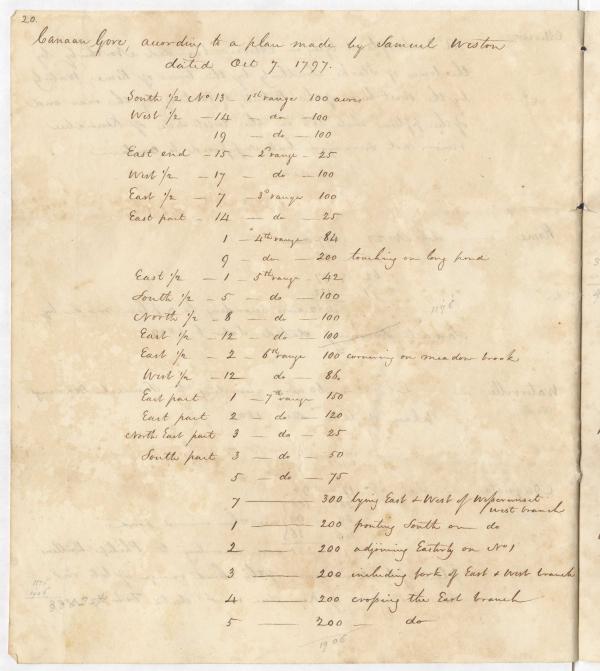 20.
Canaan Gore, according to a plan made by Samuel Weston
dated Oct 7 1797.
South 1/2 No 13 - 1st range 100 acres
West 1/2 - 14 - do - 100
19 - do - 100
East end - 15 - 2d range - 25
West 1/2 - 17 - do - 100
East 1/2 - 7 - 3d range 100
East part - 14 - do - 25
1 - 4th range 84
9 - do - 200 touching on long pond
East 1/2 - 1 - 5th range 42
South 1/2 - 5 - do - 100
North 1/2 - 8 - do - 100
East 1/2 - 12 - do - 100
East 1/2 - 2 - 6th range 100 cornering on meadow brook
West 1/2 - 12 - do - 86
East part 1 - 7th range 150
East part 2 - do - 120
North East part 3 - do - 25
South part 3 - do - 50
5 - do - 75
7 - 300 lying East & West of Wesserunset
west branch
1 - 200 ponting South on do
2 - 200 adjoining Easterly on No 1
3 - 200 including fork of East & West branch
4 - 200 crossing the East branch
5 - 200 - do
1906